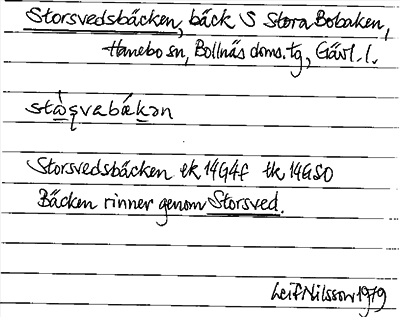 Storsvedsbäcken, bäck S Stora Bobaken,
Hanebo sn, Bollnäs doms.tg, Gävl. l.
Storsvedsbäcken ek 14G4f tk 14GSO
Bäcken rinner genom Storsved.
Leif Nilsson 1979